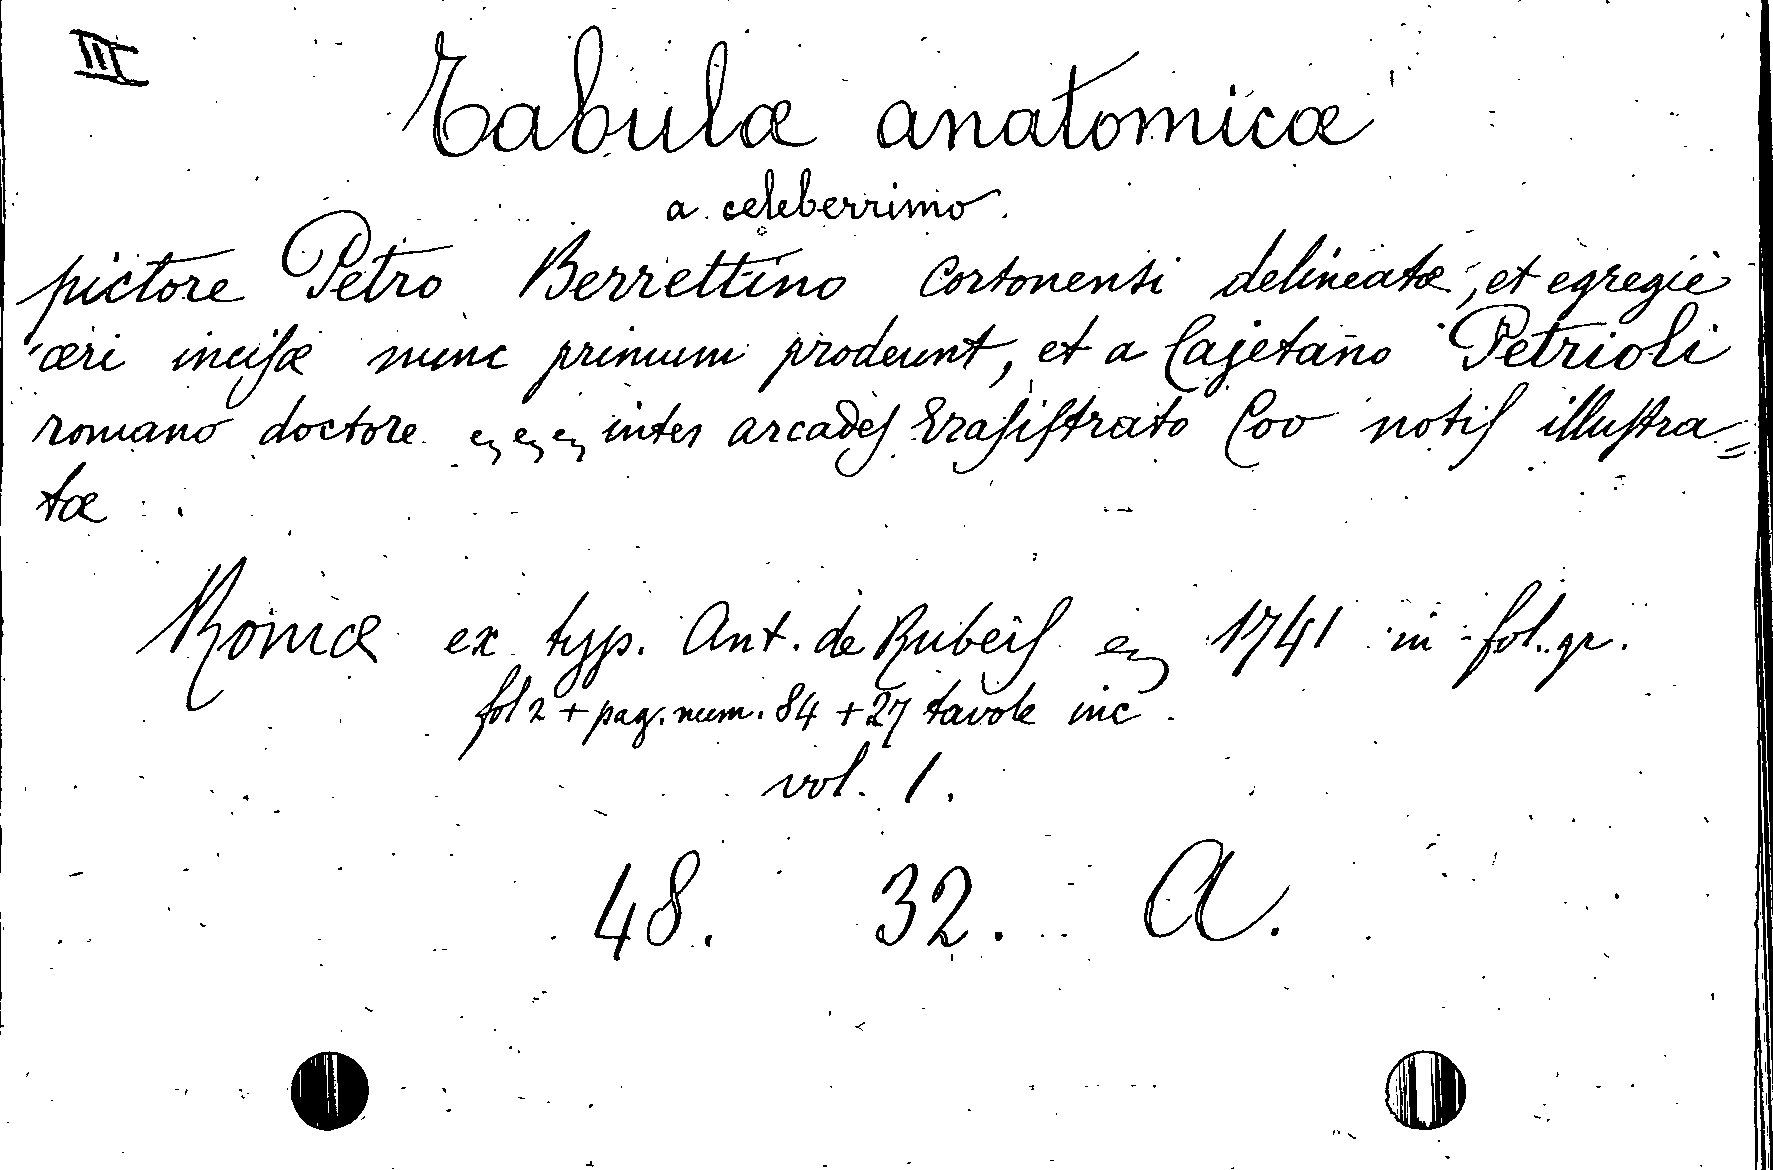 III
Tabulæ anatomicæ
a celeberrimo
pictore Petro Berrettino Cortonensi delineatæ, et egregiè
æri incisæ nunc primum prodeunt, et a Cajetano Petrioli
romano doctore &c &c &c inter arcades Erasistrato Coo notis illustra=
tæ
Romæ ex typ. Ant. de Rubeis &c 1741 in fol. gr.
fol 2 + pag. num. 84 + 27 tavole inc.
vol. 1.
48. 32. A.